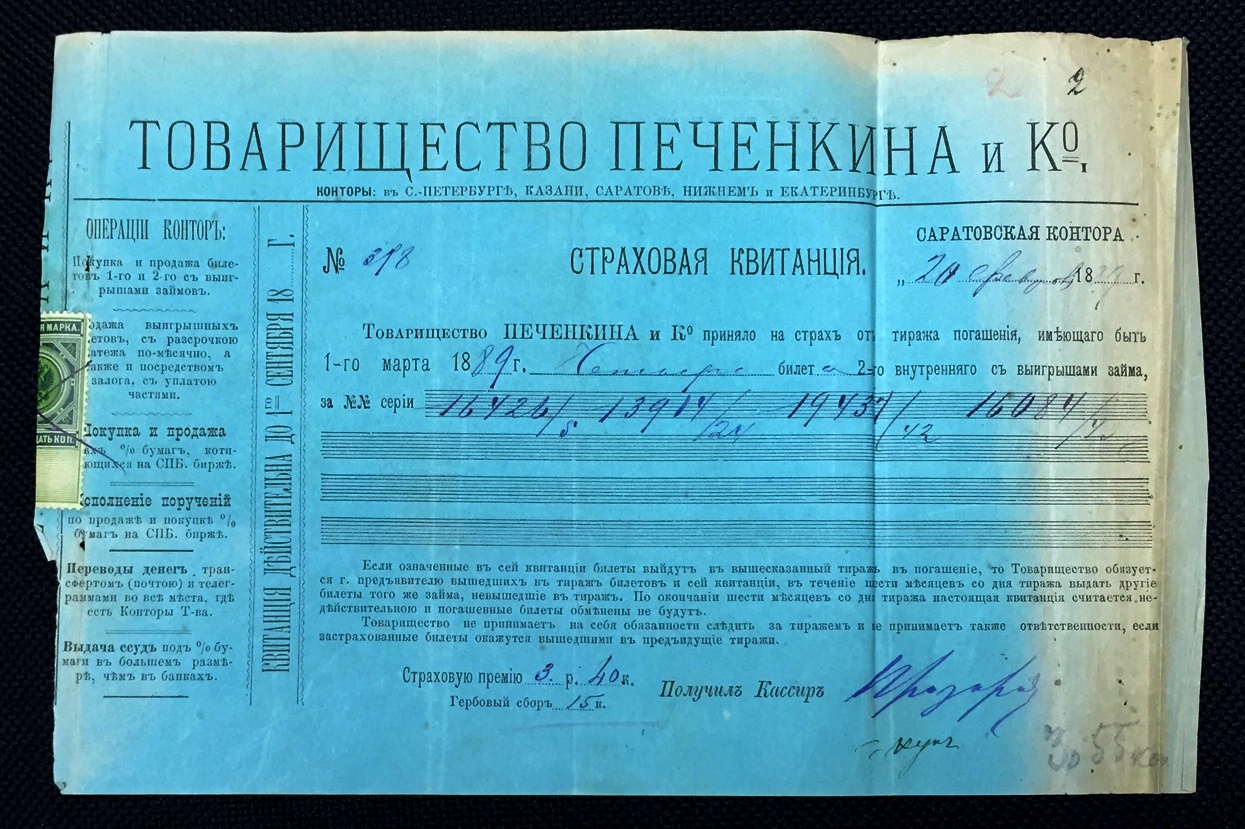 2
2
ТОВАРИЩЕСТВО ПЕЧЕНКИНА и Ко,
КОНТОРЫ: въ С.-ПЕТЕРБУРГѢ, КАЗАНИ, САРАТОВѢ, НИЖНЕМЪ и ЕКАТЕРИНБУРГѢ.
ОПЕРАЦІИ КОНТОРЪ:
Покупка и продажа биле-
товъ 1-го и 2-го съ выиг-
рышами займовъ.
одажа выигрышныхъ
етовъ, съ разсрочкою
атежа по-мѣсячно, а
акже и посредствомъ
залога, съ уплатою
частями.
Покупка и продажа
ахъ % бумаг, коти-
ющихся на СПБ. биржѣ.
Исполненіе порученій
по продажѣ и покупкѣ %
бумаг на СПБ. биржѣ.
Переводы денег, тран-
сфертом (почтою) и телег-
раммами во всѣ мѣста, гдѣ
есть Конторы Т-ва.
Выдача ссудъ под % бу-
маги въ большем размѣ-
рѣ, чѣмъ въ банкахъ.
Я МАРКА.
ДАТЬ КОП.
КВИТАНЦІЯ ДѢЙСТВИТЕЛЬНА ДО 1го СЕНТЯБРЯ 18 Г.
САРАТОВСКАЯ КОНТОРА
№ 398
СТРАХОВАЯ КВИТАНЦІЯ.
„20 февраля 1889 г.
ТОВАРИЩЕСТВО ПЕЧЕНКИНА и Ко приняло на страх отъ тиража погашенія, имѣющаго быть
1-го марта 1889 г. Четыре билета 2-го внутренняго съ выигрышами займа,
за №№ серіи 16426/5 13914/24 19437/42 16084/
Если означенные въ сей квитанціи билеты выйдутъ въ вышесказанный тиражъ въ погашеніе, то Товарищество обязует-
ся г. предъявителю вышедшихъ въ тиражъ билетовъ и сей квитанціи, въ теченіе шести мѣсяцевъ со дня тиража выдать другіе
билеты того же займа, невышедшіе въ тиражъ. По окончаніи шести мѣсяцевъ со дня тиража настоящая квитанція считается не-
дѣйствительною и погашенные билеты обмѣнены не будутъ.
Товарищество не принимаетъ на себя обязанности слѣдить за тиражемъ и не принимаетъ также отвѣтственности, если
застрахованные билеты окажутся вышедшими въ предъидущіе тиражи.
Страховую премію 3 р. 40 к.
Гербовый сборъ 15 к.
Получилъ Кассиръ
55 коп